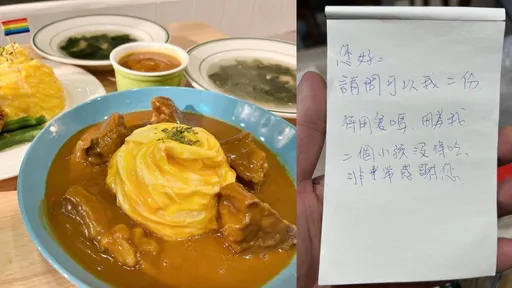 您好:
請問可以我二份
待用餐嗎,因為我
二個小孩沒得吃
非常感謝您